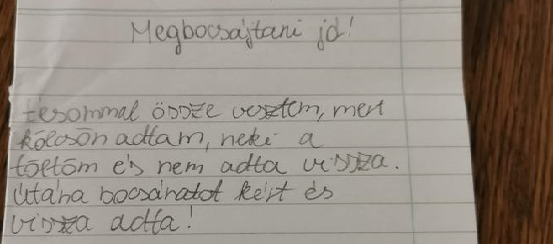 Megbocsájtani jó!
tesommal össze vesztem, mert
kölcsön adtam, neki a
töltöm és nem adta vissza.
Utána bocsánatot kért és
vissza adta!